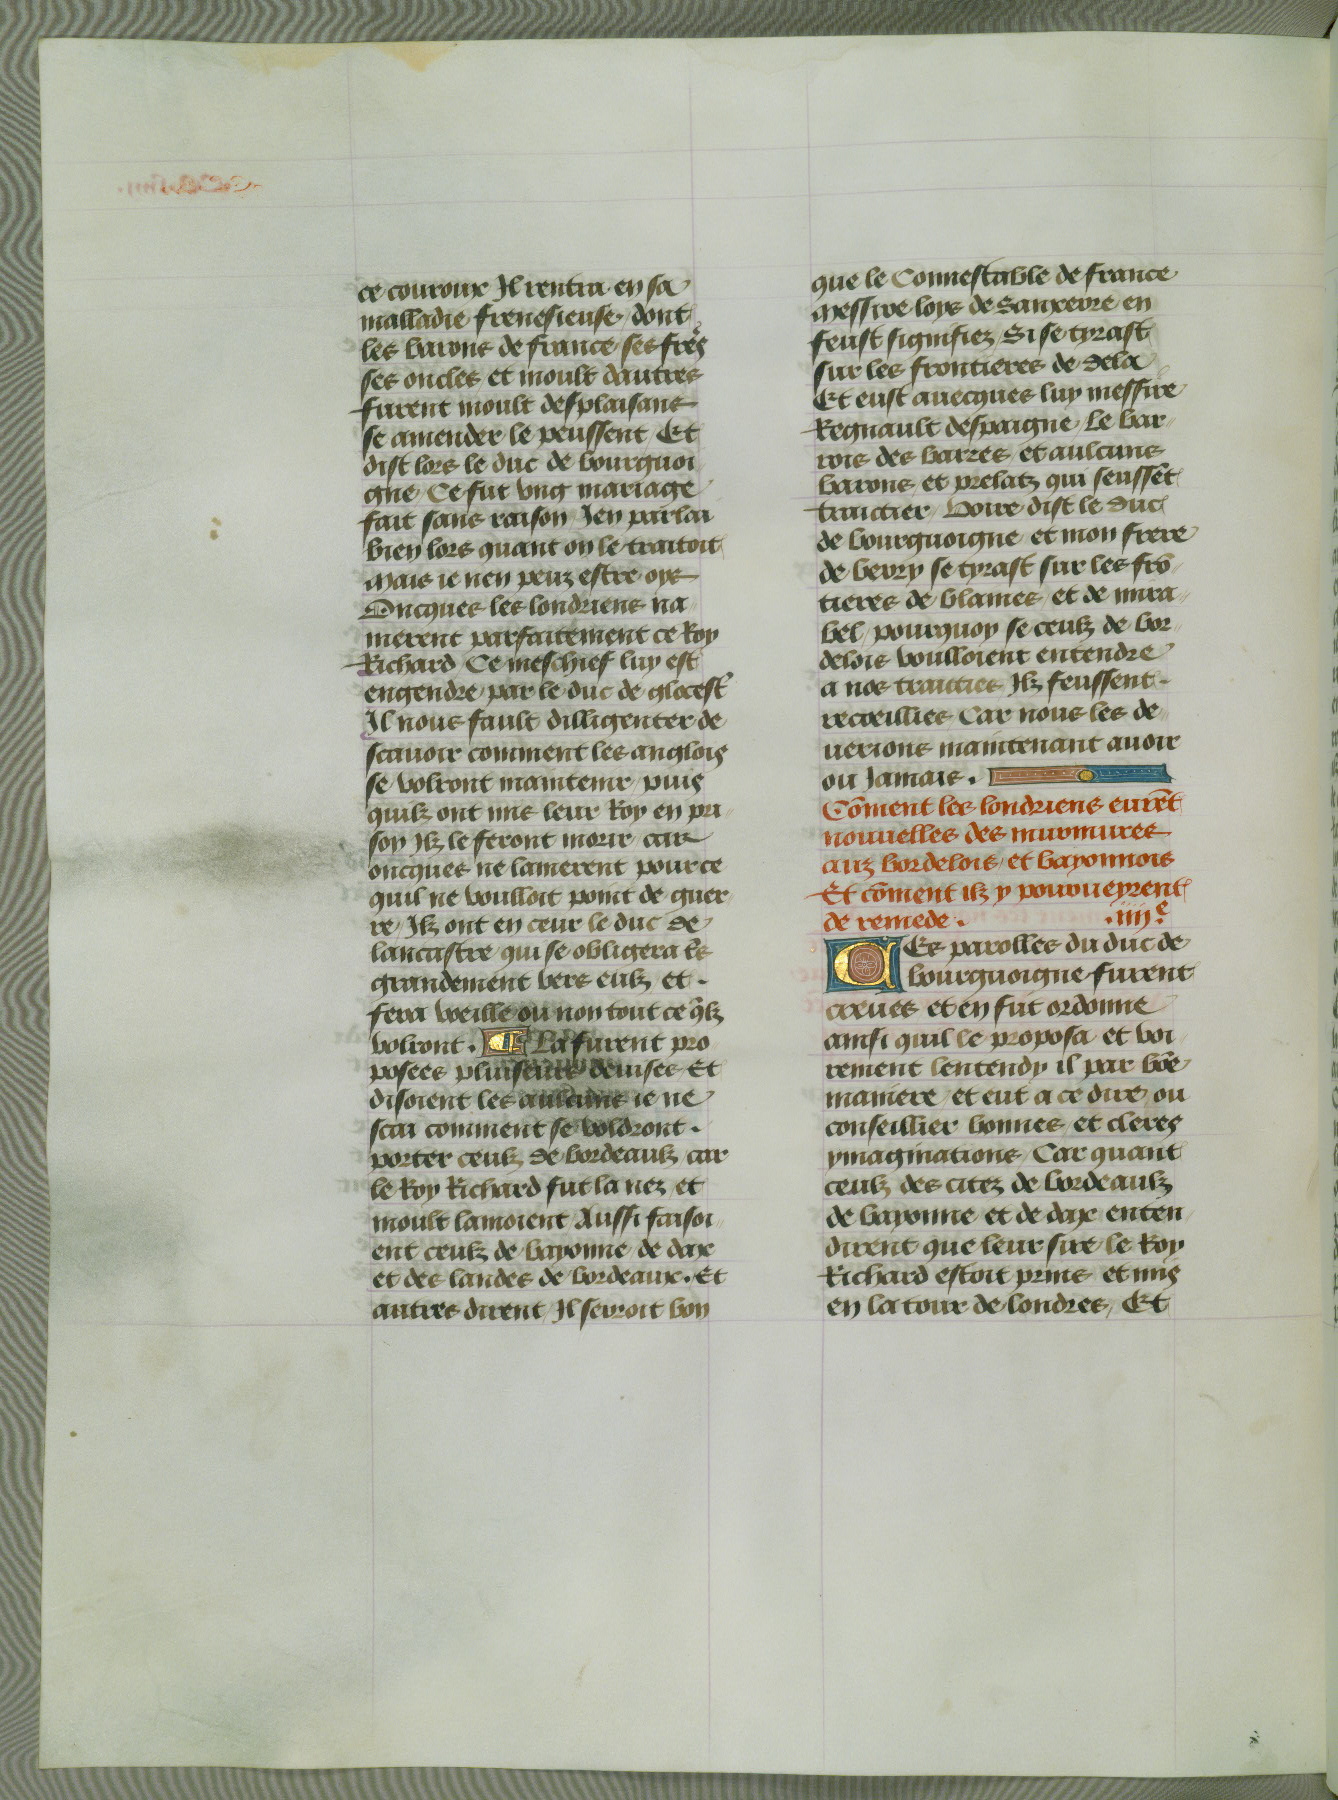 ce couroux Il rentra en sa
malladie frenesieuse dont
les barons de france ses fres
ses oncles et moult dautres
furent moult desplaisans
se amender le peussent Et
dist lors le duc de bourguoi
gne Ce fut vng mariage
fait sans raison Jen parlai
bien lors quant on le traitoit
Mais ie nen peuz estre oys
Oncques les londriens na
merent parfaitement ce Roy
Richard Ce meschief luy est
engendre par le duc de glocest
Il nous fault dilligenter de
scauoir comment les anglois
se volront maintenir puis
quilz ont mis leur Roy en pri
son Ilz le feront morir car
oncques ne lamerent pour ce
quil ne voulloit point de guer
re Ilz ont en ceur le duc de
lancastre qui se obligera les
grandement vers eulz et
fera vueille ou non tout ce qlz
volront. La furent pro
posees pluiseurs deuises Et
disoient les aulcuns ie ne
scai comment se voldront
porter ceulz de bordeaulz car
le Roy Richard fut la nez et
moult lamoient Aussi faisoi
ent ceulz de bayonne de dax
et des landes de bordeaux. Et
autres dirent Il seroit bon
que le Connestable de france
messire loys de Sanxerre en
feust signifiez Si se tyrast
sur les frontieres de dela
Et eust auecques luy messire
Regnault despaigne Le bar
rois des barres et aulcuns
barons et prelatz qui seussēt
traictier Voire dist le duc
de bourguoigne et mon frere
de berry se tyrast sur les frō
tieres de blames et de mira
bel pourquoy se ceulz de bor
delois voulloient entendre
a nos traitties Ilz feussent
recoeillies Car nous les de
uerions maintenant auoir
ou Jamais.
Cōment les londriens eurēt
nouuelles des murmures
auz bordelois et bayonnois
Et cōment ilz y pourueyrent
de remede. .iiii.e
Ces parolles du duc de
bourguoigne furent
creues et en fut ordonne
ainsi quil le proposa et voi
rement lentendy il par bōe
maniere et eut a ce dire ou
conseillier bonnes et cleres
ymaginations Car quant
ceulz des citez de bordeaulz
de bayonne et de dax enten
dirent que leur sire le Roy
Richard estoit prins et mis
en la tour de londres Et